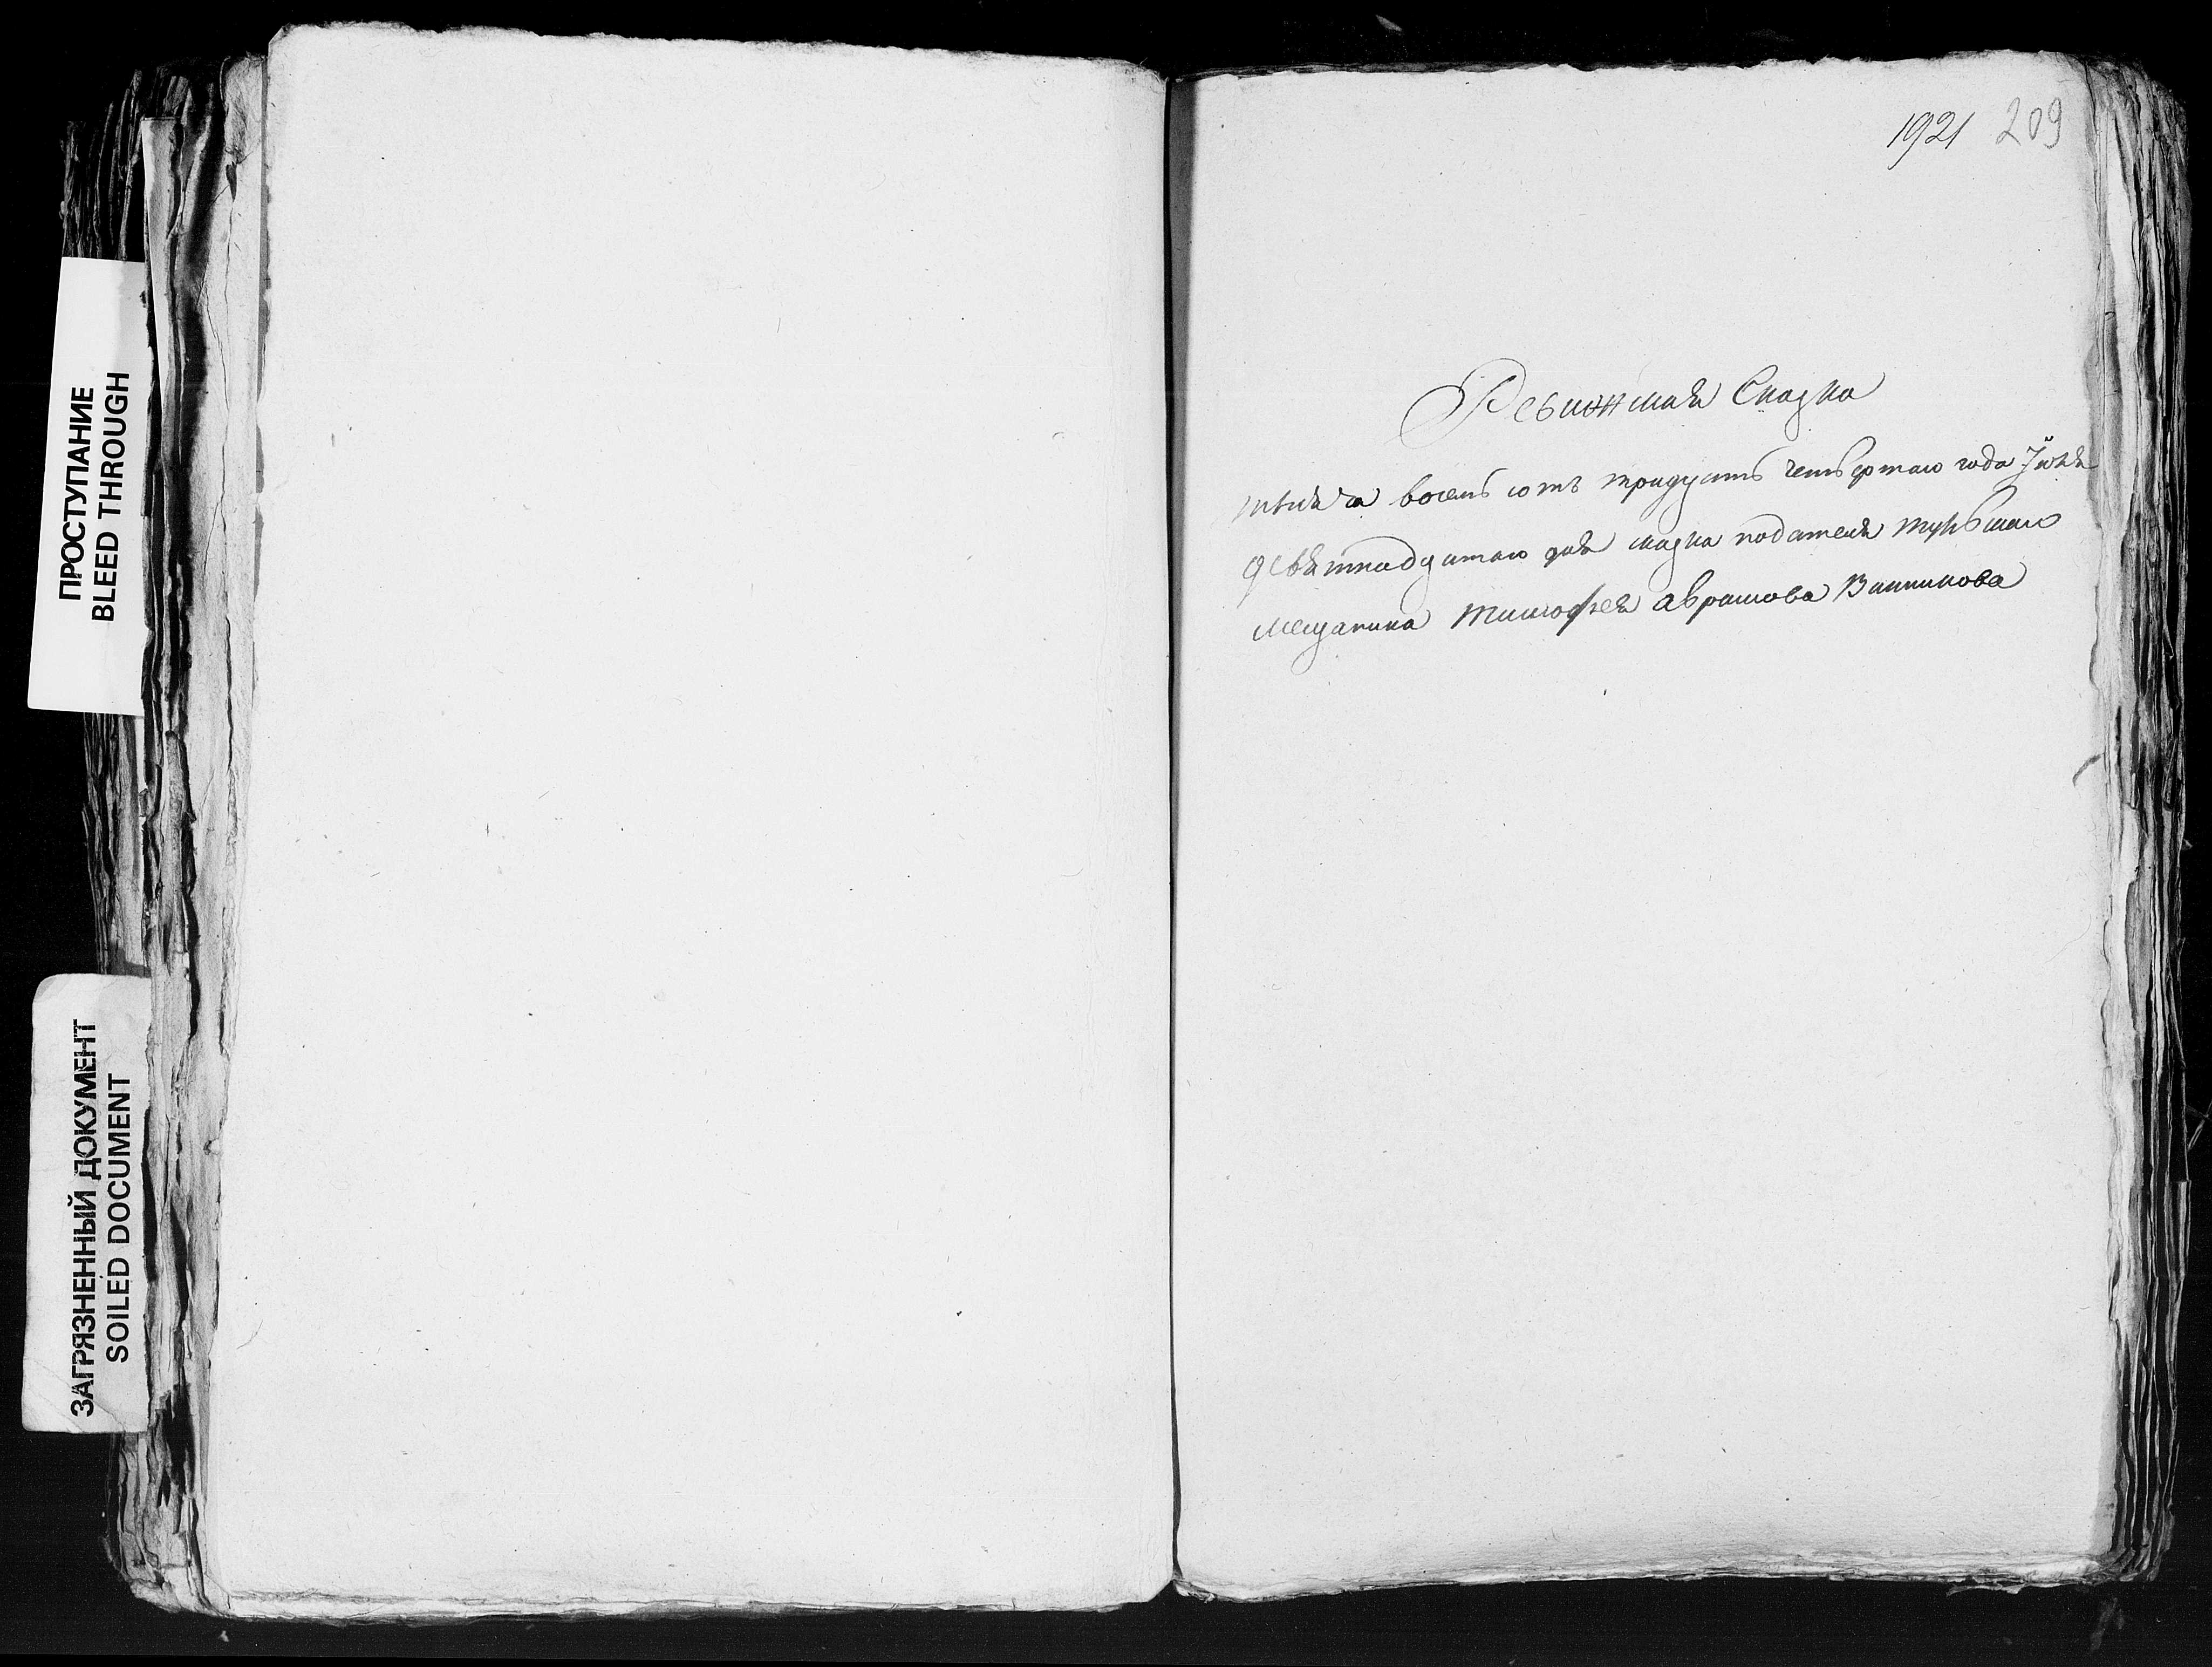 ПРОСТУПАНИЕ
BLEED THROUGH
ЗАГРЯЗНЕННЫЙ ДОКУМЕНТ
SOILED DOCUMENT
1921 209
Ревижская Сказка
тысяча восемь сотъ тридцать четвертаго года Іюня
девятнадцатаго дня сказка подателя тульскаго
мещанина тимофея аврамова